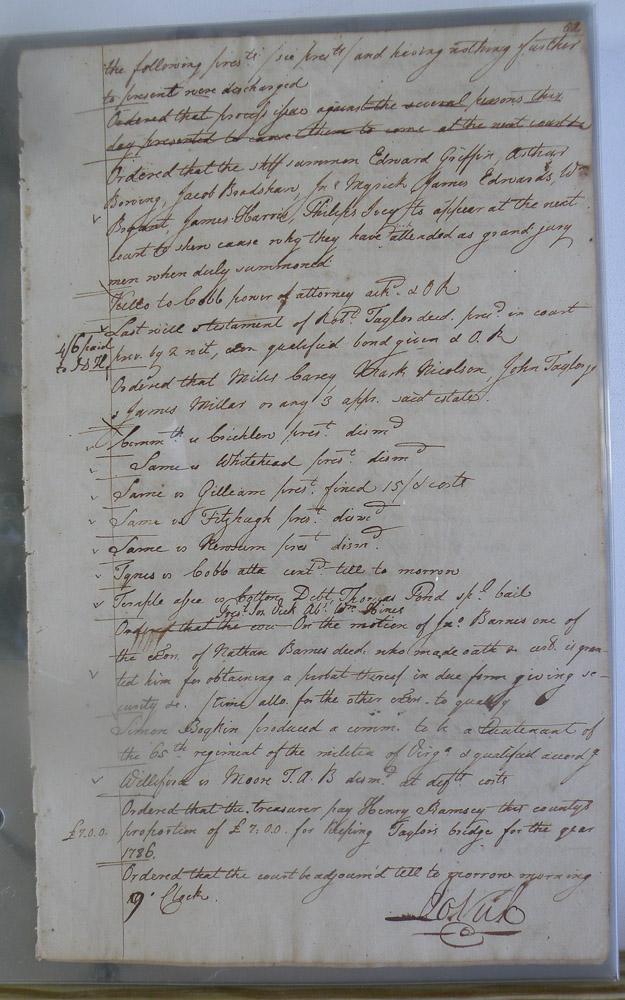 62
the following prests (see prests) and having nothing further
to present were discharged
Ordered that process issue against the several persons this
day presented to cause them to come at the next court
Ordered that the shff summon Edward Griffin, Arthur
Bowing, Jacob Bradshaw, Jno Myrick, James Edwards, Wm
Bryant, James Harris, Philips Ivey to appear at the next
court to shew cause why they have attended as grand jury
men when duly summoned
Kello to Cobb power of attorney ackd. & O R
Last will & testament of Robt. Taylor deed. presd. in court
4/6 paid
prov. by 2 wit, exor qualified bond given & O. R
Ordered that Miles Carey, Nicolson, John Taylor
& James Millar or any 3 appr. said estate.
Commth vs Crichlow prest. dismd
Same vs Whitehead prest. dismd
Same vs Gilliam prest. fined 15/ & costs
Same vs Fitzhugh prest. dismd
Same vs Newsum prest dismd.
Tynes vs Cobb atta contd. till to morrow
Temple asee vs Debt, Thomas Pond spl. bail
Jos. Vick Ab. Wm Hines
Ordered that the On the motion of Jno Barnes one of
the exors. of Nathan Barnes deed. who made oath & cert. is gran-
ted him for obtaining a probat thereof in due form giving se-
curity &c. / time allo. for the other exor. to qualify
Simon Boykin produced a comm. to be a Lieutenant of
the 65th regiment of the militia of Virga & qualified accordy
Williford vs Moore T. A. B dismd at defts costs
Ordered that the treasurer pay Henry Ramsey this county's
£7.0.0. proportion of £7:0.0. for keeping Taylor's bridge for the year
1786.
Ordered that the court be adjourn'd till to morrow morning
9 o Clock.